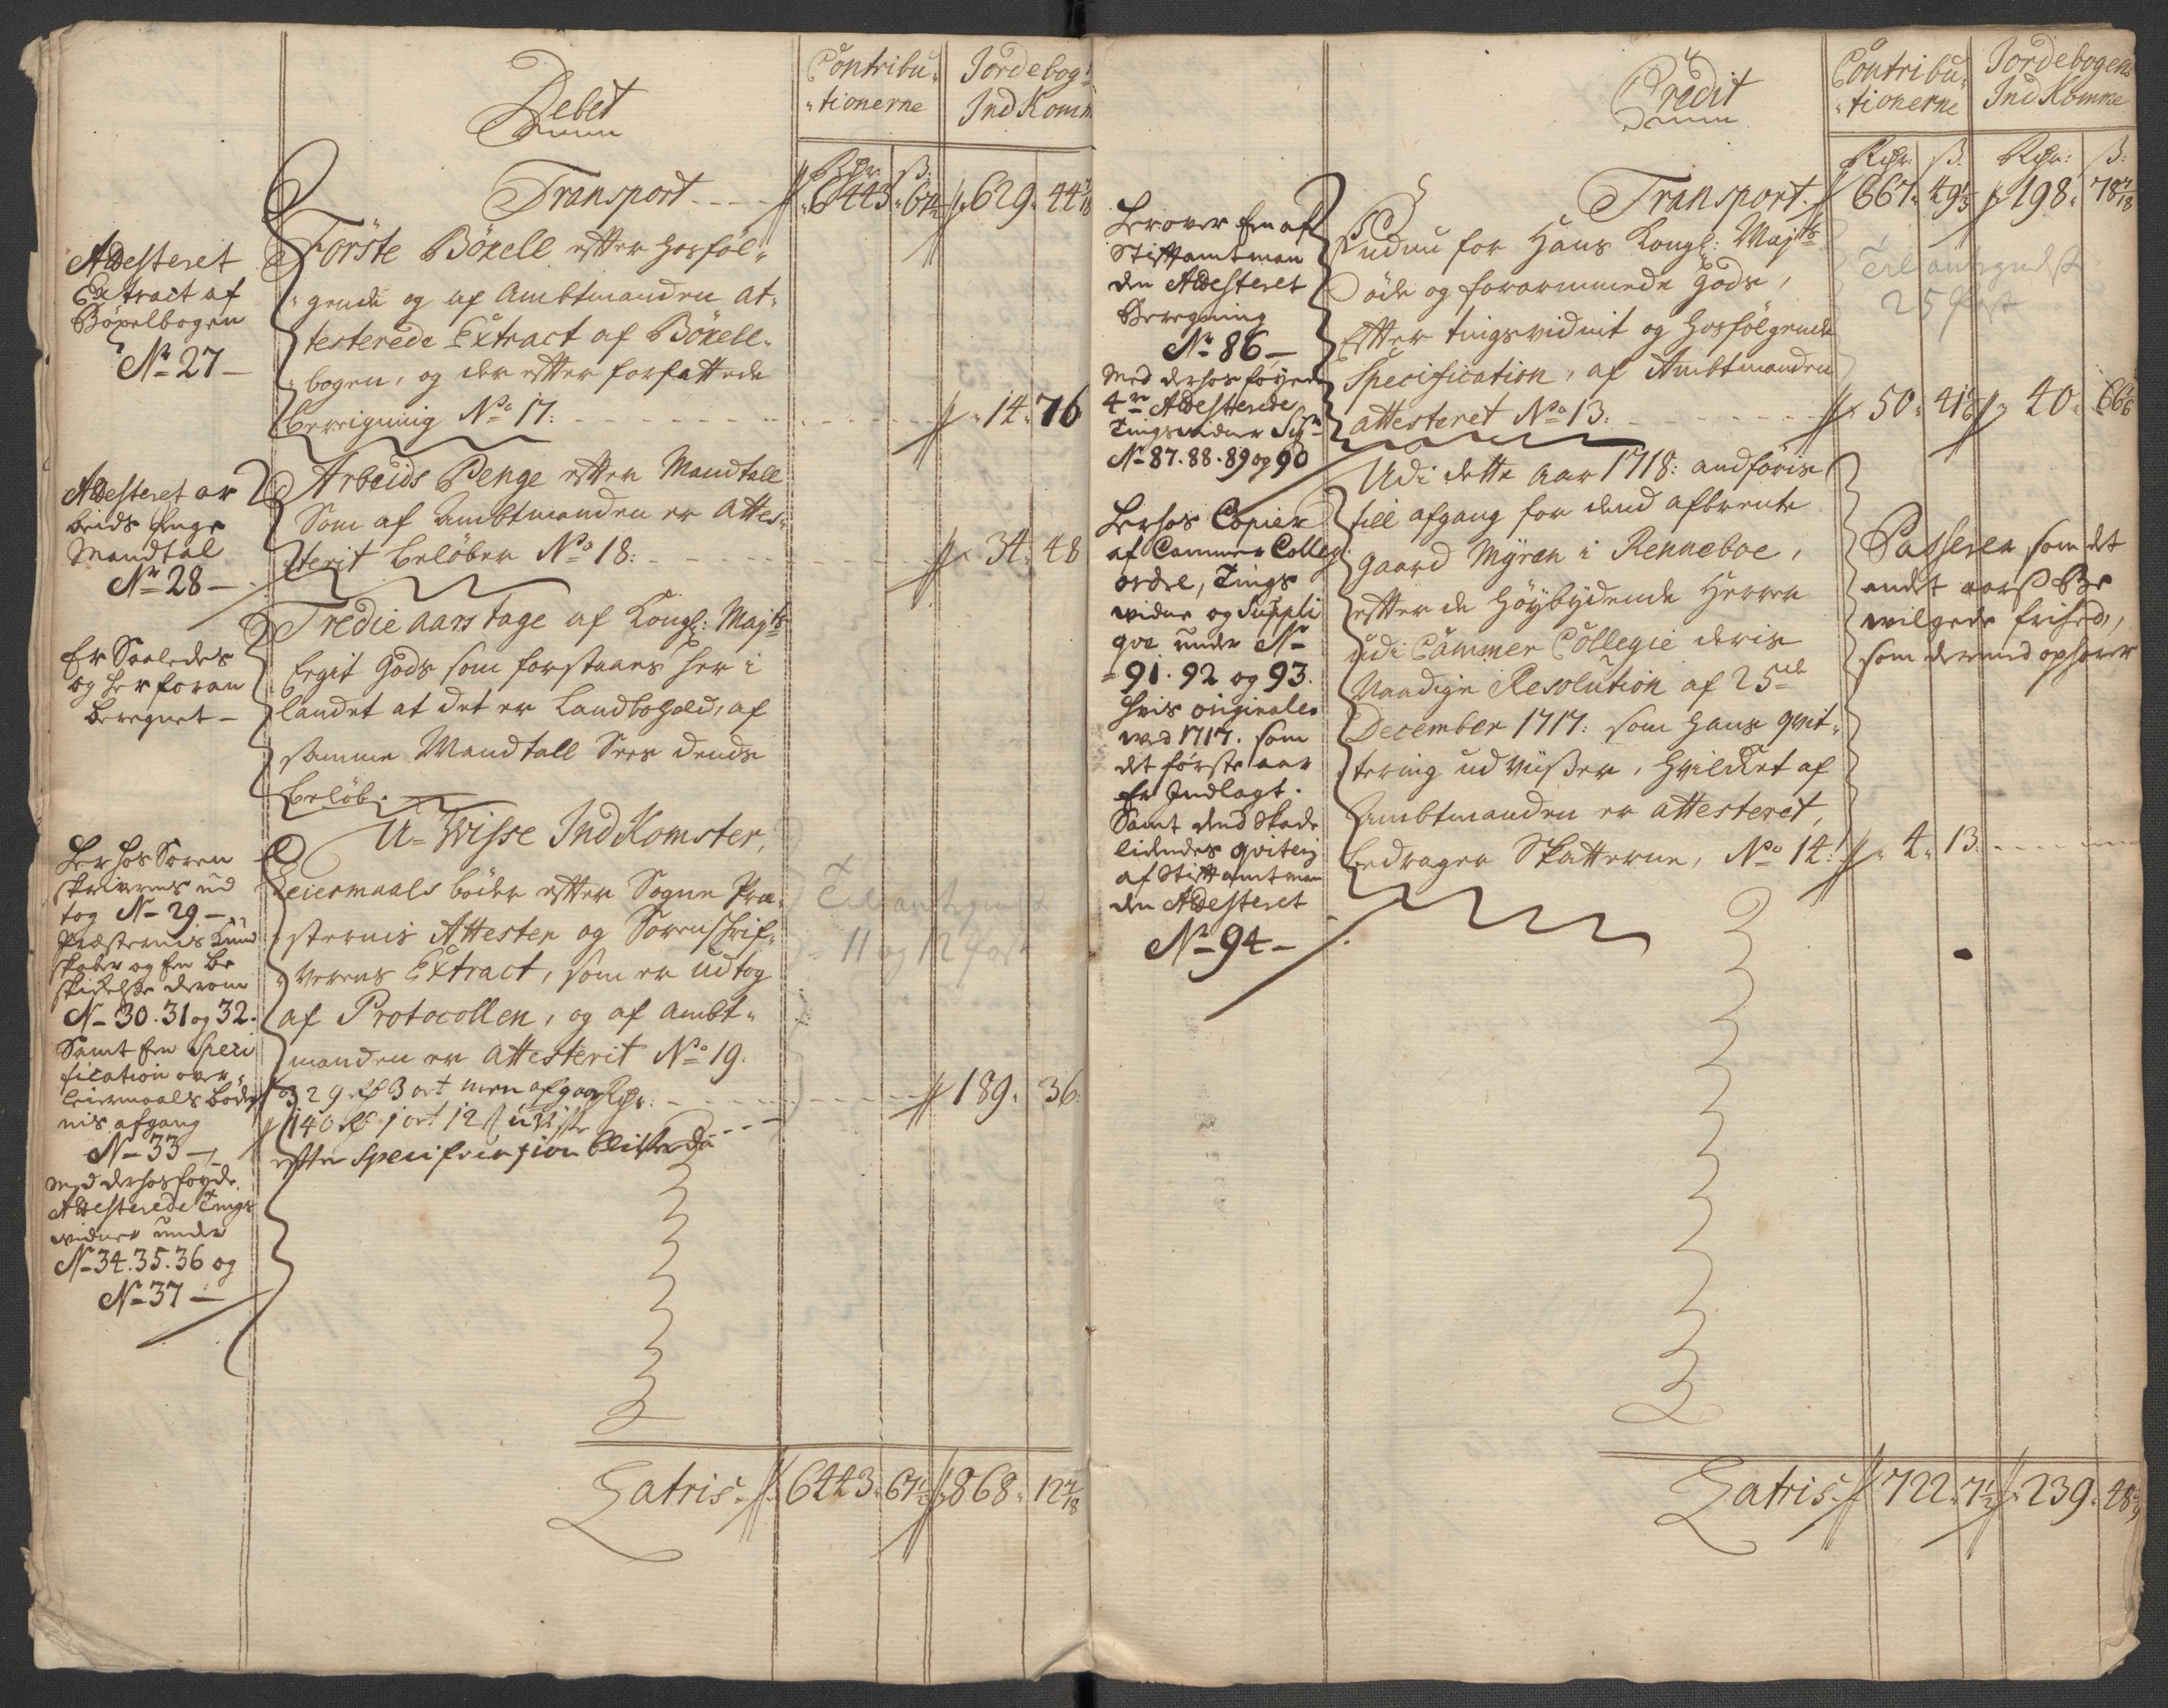 Debet
Contribu-
tionerne
Jordebog
Ind Komm
Rdr: ß:
Transport
6443. 67½
629. 44 7/18
Attesteret
Extract af
Böxelbogen
No 27
Förste Böxell efter hosföl-
gende og af Ambtmanden at-
testerede Extract af Böxell-
bogen, og der efter forfattede
beregning No 17:
14. 76
Attesteret ar
beids penge
Mandtal
No 28
Arbeids Penge efter Mandtall
Som af Ambtmanden er Attes-
terit beløber No 18:
34. 48
Er Saaledes
og her foran
beregnet
Tredie aars tage af Kongl: Majts
Eeget Gods som forstaaes her i
landet at det er Landbohold, af
samme Mandtall Sees dends
beløb.
U-Wisse IndKomster,
Her hos Soren
skrivrens ud
tog No 29
Præsternis Kund
skaber og En be
skickelse derom
No 30. 31 og 32.
Samt En Speci
fication over
leiermaals böder
nis afgang
No 33
med derhos föyede
Attesterede Tings
vidner under
No 34. 35. 36 og
No 37
Leiermaals böder efter Sogne Præ-
sternis Attester og Sorenschrif-
verens Extract, som er udtog
af Protocollen, og af Ambt-
manden er Attesterit No 19.
329 rdr 3 ort men afgaar Rdr:
140 rdr 1 ort 12 ß uvisse
efter Specification bliver da
189. 36.
Til antegnelse
11 og 12 post
Latris
6443. 67½
868. 12 7/18
Credit
Contribu-
tionerne
Jordebogens
Ind Komme
Rdr: ß: Rdr: ß:
Transport
667. 49⅓
198. 78 7/18
Her over En af
Stiftamtman
den Attesteret
Beregning
No 86
med derhos föyede
4re Attesterede
Tingsvidner Sub
No 87. 88. 89 og 90
Endnu for Hans Kongl: Majts
öde og forarmmede Gods,
Efter tingsvidnit og hosfölgende
Specification, af Ambtmanden
attesteret No 13:
Til antegnelse
25 post
50. 41
40. 66
Her hos Copier
af Cammer Colleg:
ordre, Tings
vidne og Suppli
qve under No
91. 92 og 93.
Hvis originaler
ved 1717. som
det første aar
Er Indlagt.
Samt dend skade
lidendes qvitering
af Stiftamtman
den Attesteret
No 94
Udi dette Aar 1718: andføris
till afgang for dend afbrente
gaard Myren i Renneboe,
efter de Höybydende Herrer
udi Cammer Collegie deris
Naadige Resolution af 25de
December 1717: som hans qvit-
tering udviißer, hvilcket af
Ambtmanden er attesteret,
bedrager Skatterne, No 14:
4. 13.
Passerer som det
andet aars Be
vilgede frihed,
som dermed ophører
Latris
722. 7½
239. 48